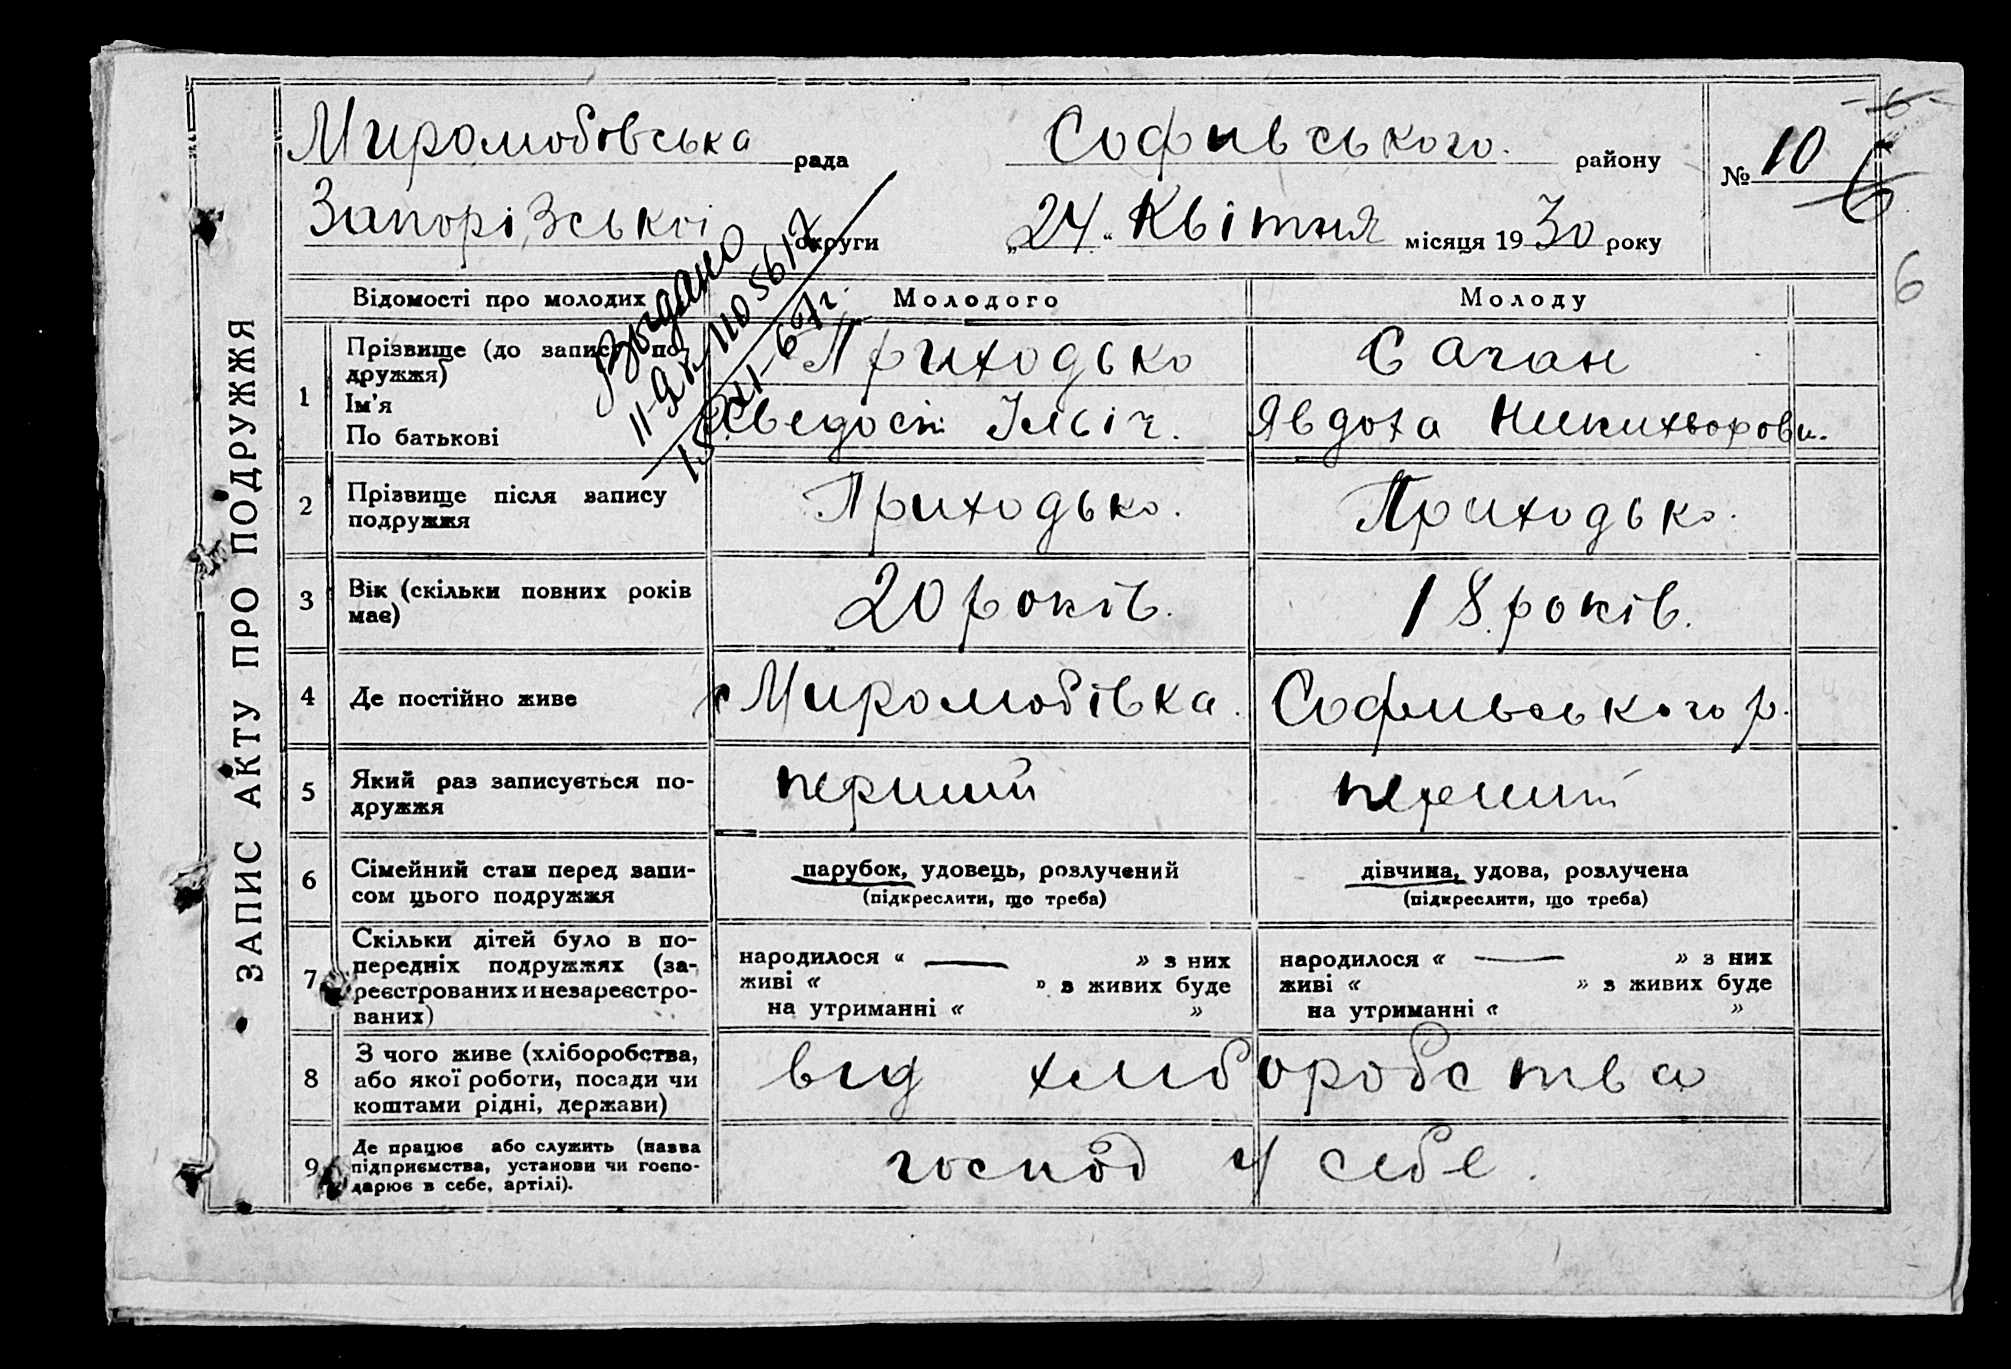 ЗАПИС АКТУ ПРО ПОДРУЖЖЯ
Миролюбовська рада Софиівського. району № 10
Запорізської округи „24“ Квітня місяця 1930 року
6
Видано
Відомості про молодих Молодого Молоду
1 Прізвище (до запису подружжя) Приходько Саган
Ім'я
По батькові Хведосій Ілліч. Явдоха Никихворови.
2 Прізвище після запису Приходько. Приходько.
подружжя
3 Вік (скільки повних років 20 років. 18 років.
має)
4 Де постійно живе с Миролюбівка. Софиівського р.
5 Який раз записується по- перший перший
дружжя
6 Сімейний стан перед запи- парубок, удовець, розлучений дівчина, удова, розлучена
сом цього подружжя (підкреслити, що треба) (підкреслити, що треба)
7 Скільки дітей було в по-
передніх подружжях (за-
реєстрованих и незареєстро-
ваних)
народилося « — » з них народилося « — » з них
живі « » з живих буде живі « » з живих буде
на утриманні « » на утриманні « »
8 З чого живе (хліборобства,
або якої роботи, посади чи
коштами рідні, держави)
від хліборобства
9 Де працює або служить (назва
підприємства, установи чи госпо-
дарює в себе, артілі).
господ у себе.